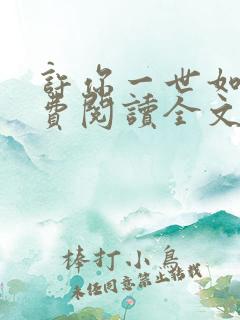 許你一世如
費閱讀全文
棒打小鳥
未經同意禁止轉載